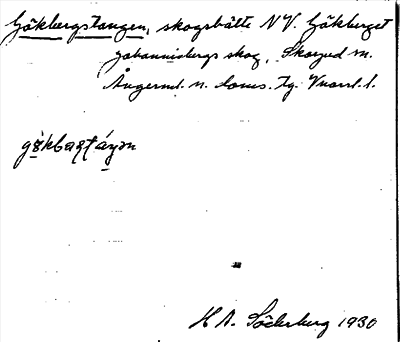 Gökbergstangen, skogsbälte NV. Gökberget
Johannisbergs skog, Skorped sn.
Ångerml. n. doms. tg. Vnorrl. l.
gökbaqtáŋən
H A. Söderberg 1930